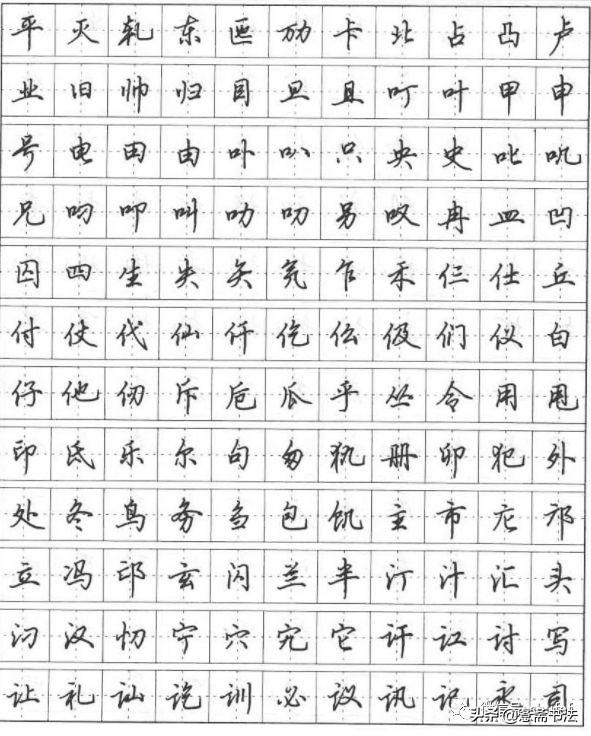 平灭轧东匜劢卡北占凸卢
业旧帅归目旦且叮叶甲申
号电田由卟叭只央史叱叽
兄叼叩叫叻叨另叹冉皿凹
囚四生失矢氕乍禾仨仕丘
付仗代仙仟仡伝伋们仪白
仔他仞斥卮瓜乎丛令用甩
印氐乐尔句匆犰册卯犯外
处冬鸟务刍包饥主市庀邝
立冯邙玄闪兰半汀汁汇头
汈汉忉宁穴宄它讦讧讨写
让礼讪讫训必议讯记永司
头条@煮斋书法